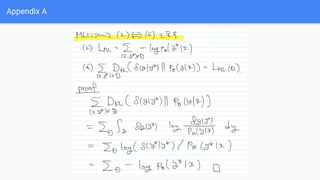 Appendix A
(2) L_ML = Σ_{(x,y*)∈D} -log p_θ(y*|x)
(6) Σ_{(x,y*)∈D} D_KL( δ(y|y*) || p_θ(y|x) ) = L_ML(θ)
proof
Σ_{(x,y*)∈D} D_KL( δ(y|y*) || p_θ(y|x) )
= Σ_D ∫_y δ(y|y*) · log δ(y|y*) / p_θ(y|x) dy
= Σ_D log( δ(y*|y*) / p_θ(y*|x) )
= Σ_D - log p_θ(y*|x) □